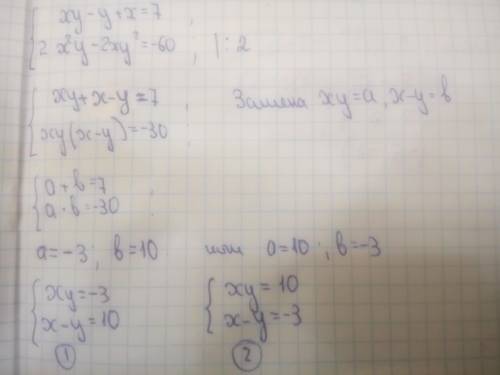 xy-y+x=7,
2x²y-2xy²=-60, |:2
xy+x-y=7 Замена xy=a, x-y=b
xy(x-y)=-30;
a+b=7
a·b=-30;
a=-3; b=10 или a=10; b=-3
xy=-3 xy=10
x-y=10 x-y=-3
1 2